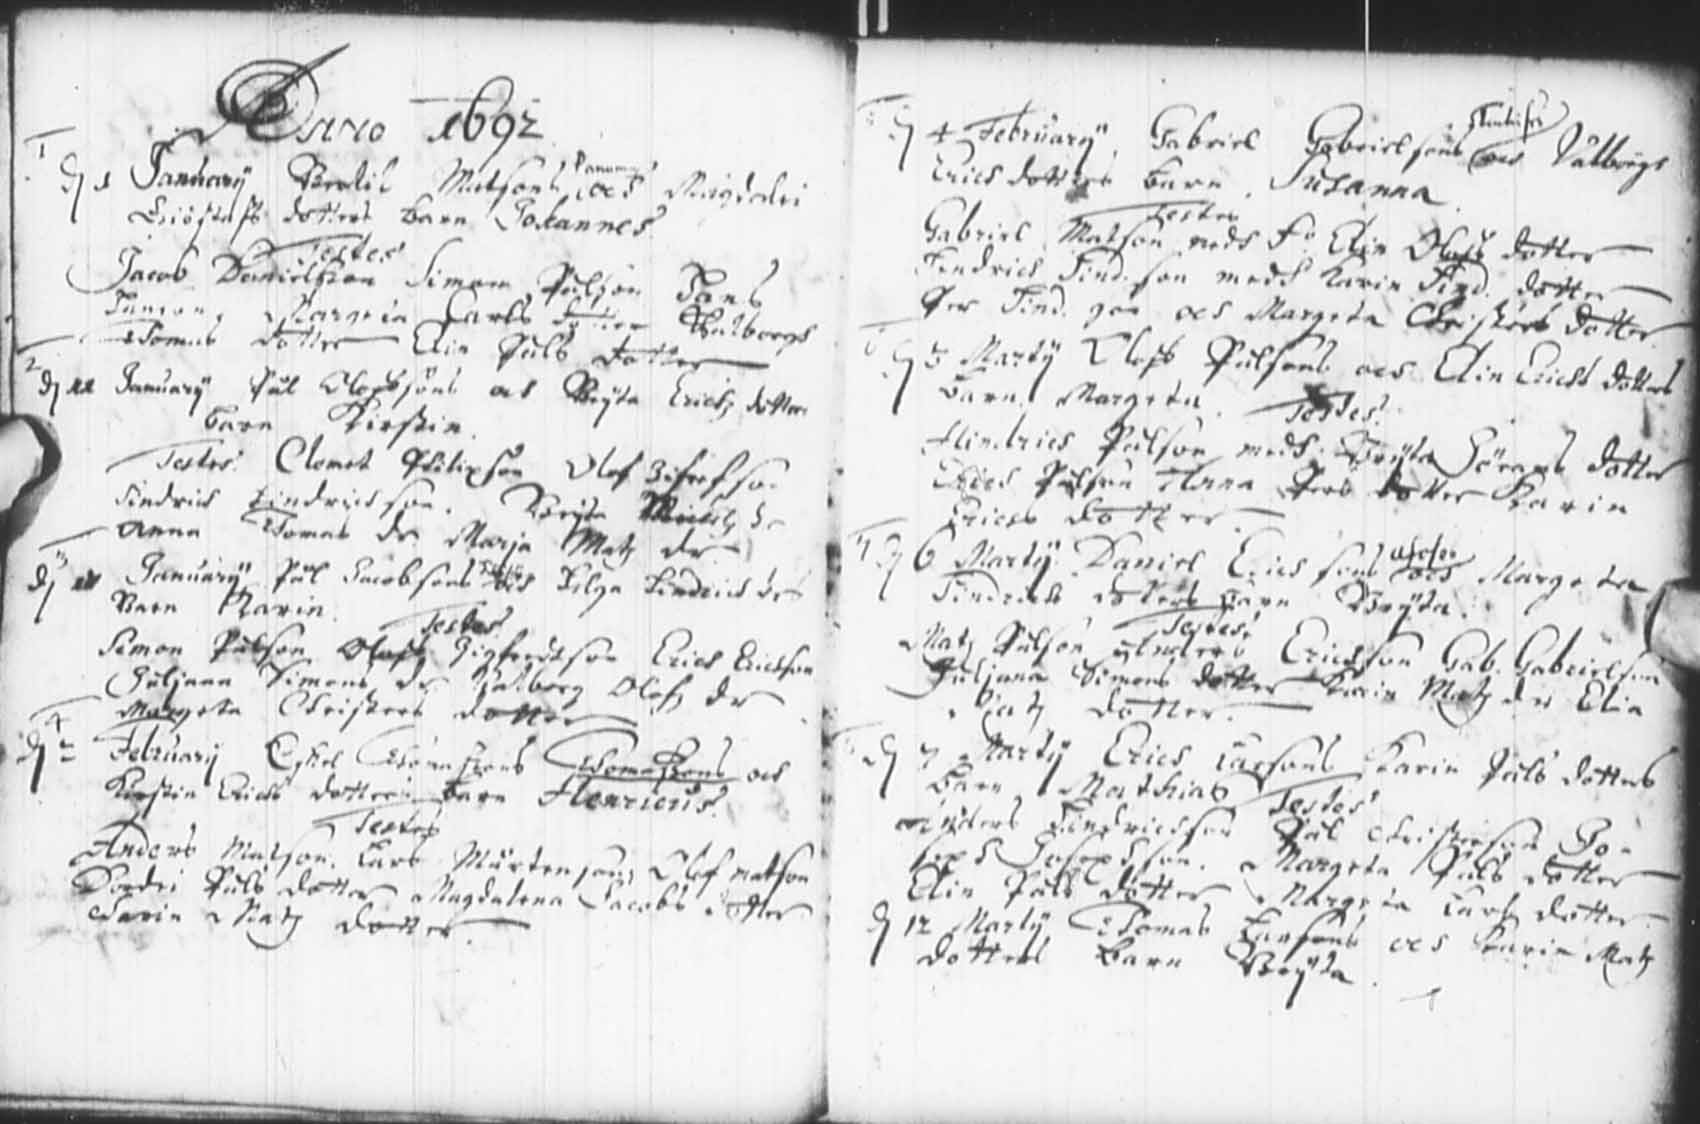 Anno 1692
1
d 1 January Bertil Matsons och Magdalen
dotters barn Johannes
Testes
Jacob Danielsson Simon Pålson Hans
Margeta Lars dotter Walborg
Tomas dotter Elin Påls dotter
2
d 11 January Pål Olofsons och Bryta Erichs dotters
barn Kirstin
Testes Clemet Philipson Olof Sifrefson
Hindrich Hindrichson. Bryta
Anna Tomas dr Marja Matz dr
3
January Pål Jacobsons och Helga Hindrichs drs
Barn Karin.
Testes
Simon Pålson Olof Sigfredson Erich Erichson
Juljana Simons dr Walborg Olofz dr
Margeta Christers dotter
4
d 2 February Eskel Thomassons och
Kirstin Erichs dotters barn Henricus.
Testes
Anders Matson. Lars Mårtenson Olof Matson
Påls dotter Magdalena Jacobs dotter
Karin Matz dotter.
d 4 February. Gabriel Gabrielsons och Valborgs
Erichs dotters barn. Susanna
Testes
Gabriel Matson meds Elin Olofs dotter
Hindrich Hindson meds Karin Hind. dotter
Per Hind. son och Margeta Christers dotter
d 3 Marty Olofs Pålsons och Elin Erichs dotters
Barn Margeta. Testes.
Hindrich Pålson meds Bryta Görans dotter
Erich Pålson Anna Pers dotter Karin
Erichs dotter
d 6 Marty Daniel Erichsons och Margeta
Hindrichs dotters barn Bryta.
Testes.
Matz Pålson Anders Erichson Gab. Gabrielson
Juljana Simons dotter Karin Matz dr Elin
Matz dotter.
d 7 Marty Erich Larsons Karin Påls dotters
Barn Mathias Testes
Anders Hindrichson Pål Christerson Jo-
seph Josephson. Margeta Påls dotter
Elin Påls dotter Margeta Lars dotter
d 12 Marty Tomas Larsons och Karin Matz
dotters barn Bryta.